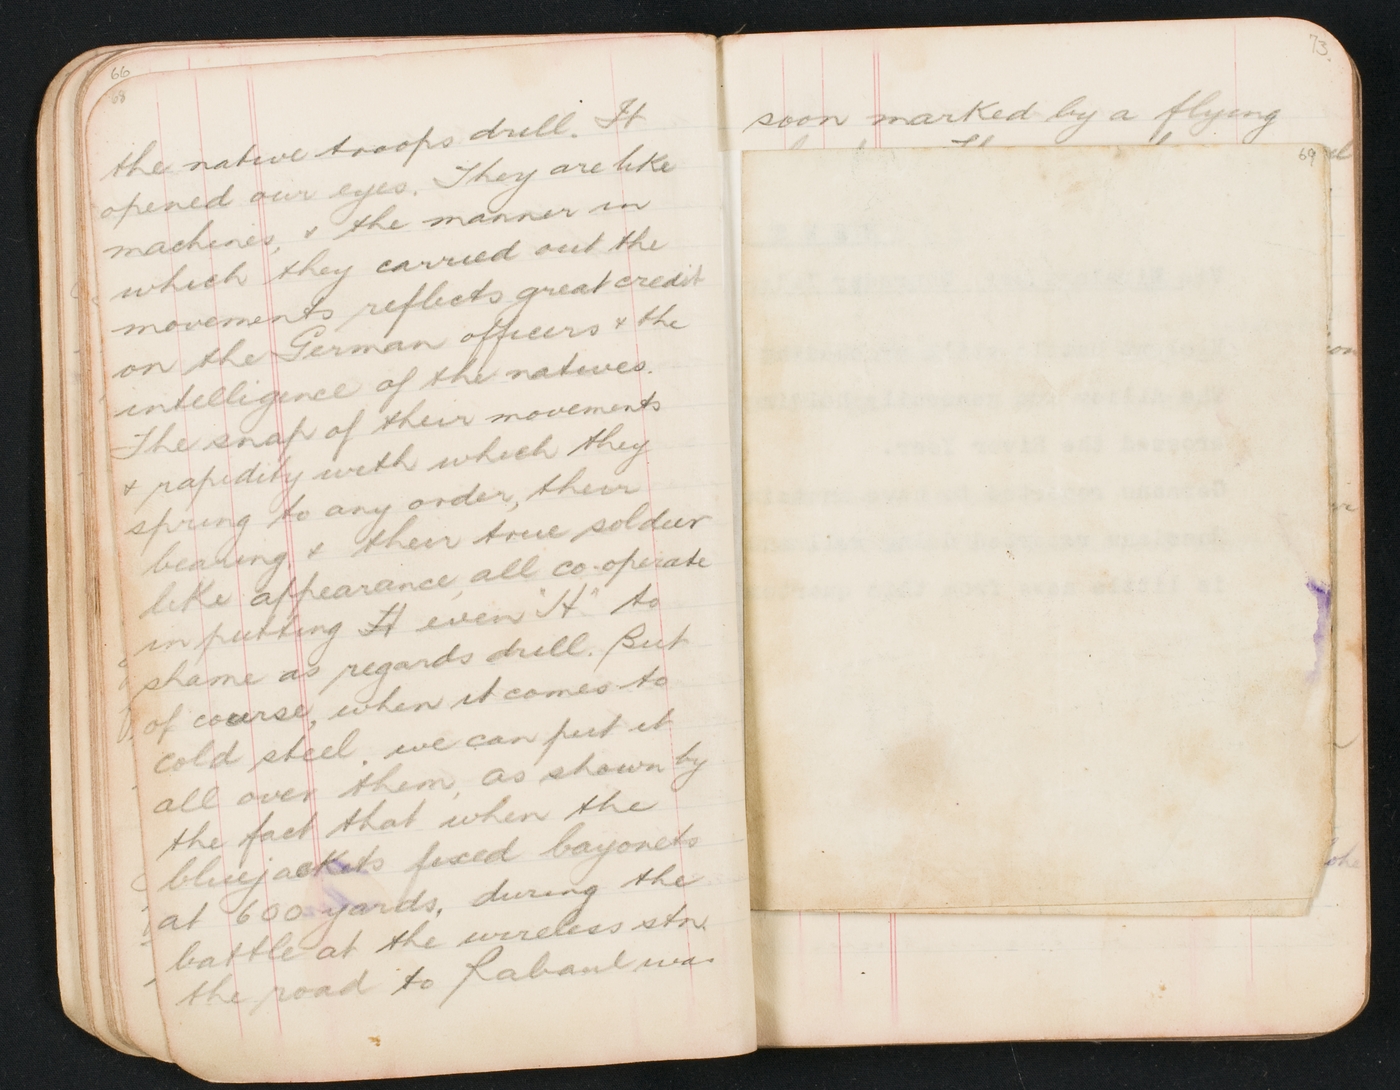 66
68
the native troops drill. It
opened our eyes. They are like
machines, & the manner in
which they carried out the
movements reflects great credit
on the German officers & the
intelligence of the natives.
The snap of their movements
& rapidity with which they
spring to any order, their
bearing & their true soldier
like appearance, all co-operate
in putting It even "It" to
shame as regards drill. But
of course, when it comes to
cold steel, we can put it
all over them, as shown by
the fact that when the
bluejackets fixed bayonets
at 600 yards, during the
battle at the wireless stn.
the road to Rabaul was
73.
soon marked by a flying
69